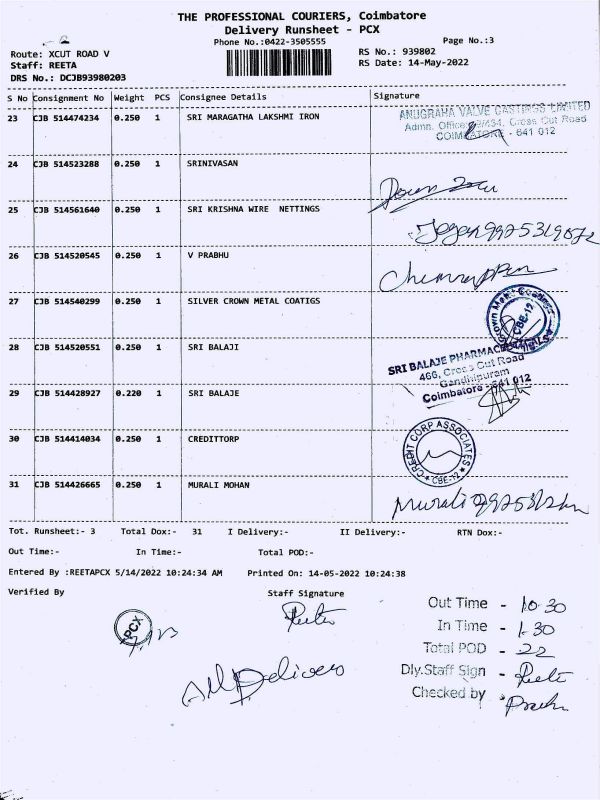 THE PROFESSIONAL COURIERS, Coimbatore
Delivery Runsheet - PCX
Phone No.:0422-3505555 Page No.:3
Route: XCUT ROAD V RS No.: 939802
Staff: REETA RS Date: 14-May-2022
DRS No.: DCJB93980203
S No Consignment No Weight PCS Consignee Details Signature
23 CJB 514474234 0.250 1 SRI MARAGATHA LAKSHMI IRON
ANUGRAHA VALVE CASTINGS LIMITED
Admn. Office: Cross Cut Road
COIMBATORE - 641 012
24 CJB 514523288 0.250 1 SRINIVASAN
25 CJB 514561640 0.250 1 SRI KRISHNA WIRE NETTINGS
26 CJB 514520545 0.250 1 V PRABHU
27 CJB 514540299 0.250 1 SILVER CROWN METAL COATIGS
CBE-12
28 CJB 514520551 0.250 1 SRI BALAJI
SRI BALAJE PHARMACEUTICALS
466, Cross Cut Road
Gandhipuram
Coimbatore - 641 012
29 CJB 514428927 0.220 1 SRI BALAJE
30 CJB 514414034 0.250 1 CREDITTORP
CREDIT CORP ASSOCIATES
★ CBE-12 ★
31 CJB 514426665 0.250 1 MURALI MOHAN
Murali
Tot. Runsheet:- 3 Total Dox:- 31 I Delivery:- II Delivery:- RTN Dox:-
Out Time:- In Time:- Total POD:-
Entered By :REETAPCX 5/14/2022 10:24:34 AM Printed On: 14-05-2022 10:24:38
Verified By Staff Signature
PCX
Out Time - 10-30
In Time - 1-30
Total POD - 22
Dly.Staff Sign -
Checked by